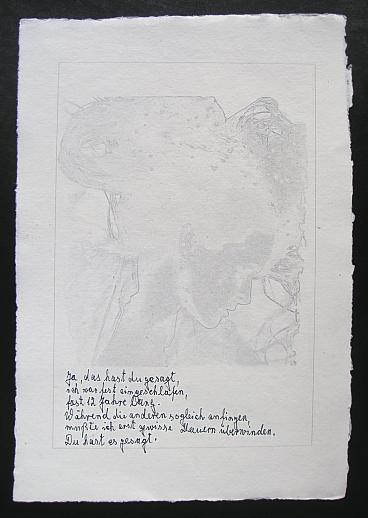 Ja, das hast du gesagt,
ich war fest eingeschlafen,
fast 12 Jahre
Während die anderen sogleich anfingen,
mußte ich erst gewisse Mauern überwinden.
Du hast es gesagt.